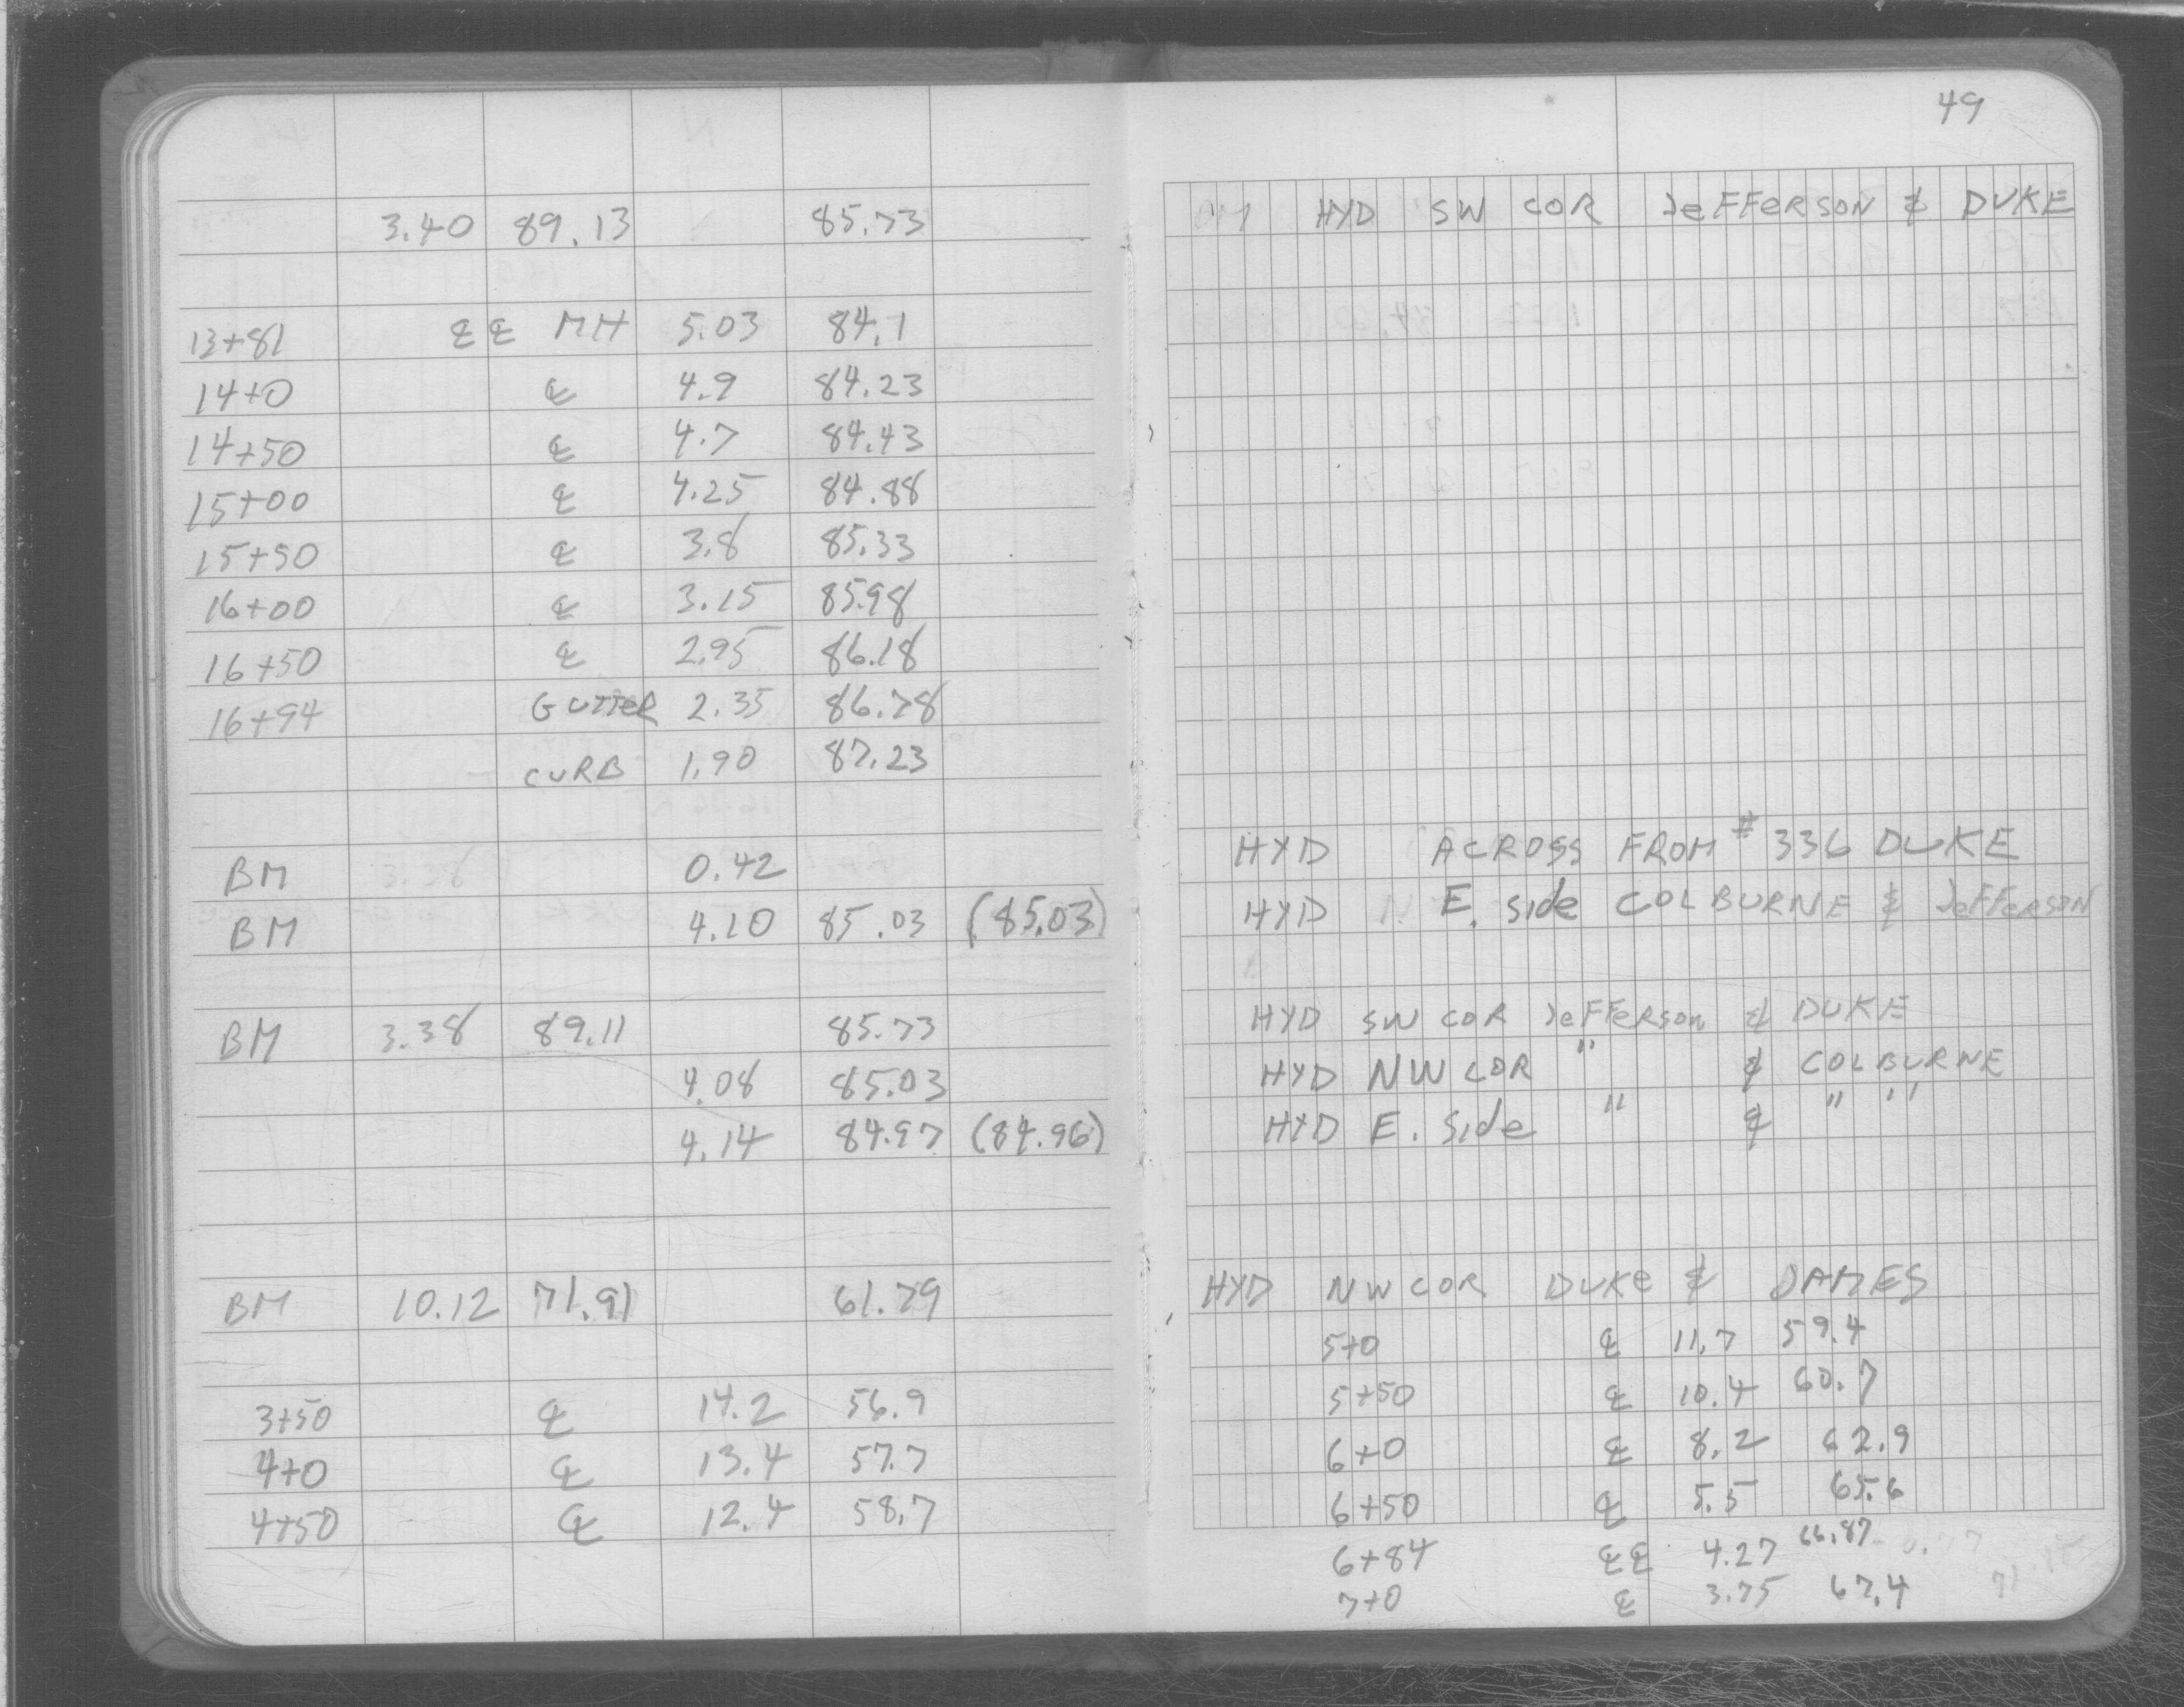 49
3.40 89.13 85.73
13+81 ℄ ℄ MH 5.03 84.1
14+0 ℄ 4.9 84.23
14+50 ℄ 4.7 84.43
15+00 ℄ 4.25 84.88
15+50 ℄ 3.8 85.33
16+00 ℄ 3.15 85.98
16+50 ℄ 2.95 86.18
16+94 GUTTER 2.35 86.78
CURB 1.90 87.23
BM 3.38 0.42
BM 4.10 85.03 (85.03)
BM 3.38 89.11 85.73
4.08 85.03
4.14 84.97 (84.96)
BM 10.12 71.91 61.79
3+50 ℄ 14.2 56.9
4+0 ℄ 13.4 57.7
4+50 ℄ 12.4 58.7
HYD SW COR JeFFeRSON & DUKE
HYD ACROSS FROM # 336 DUKE
HYD E. side COLBURNE & JeFFeRSON
HYD SW COR JeFFeRSon & DUKE
HYD NW COR " & COLBURNE
HYD E. Side " & " "
HYD NW COR DUKe & JAMES
5+0 ℄ 11.7 59.4
5+50 ℄ 10.4 60.7
6+0 ℄ 8.2 62.9
6+50 ℄ 5.5 65.6
6+84 ℄℄ 4.27 66.87
7+0 ℄ 3.75 67.4